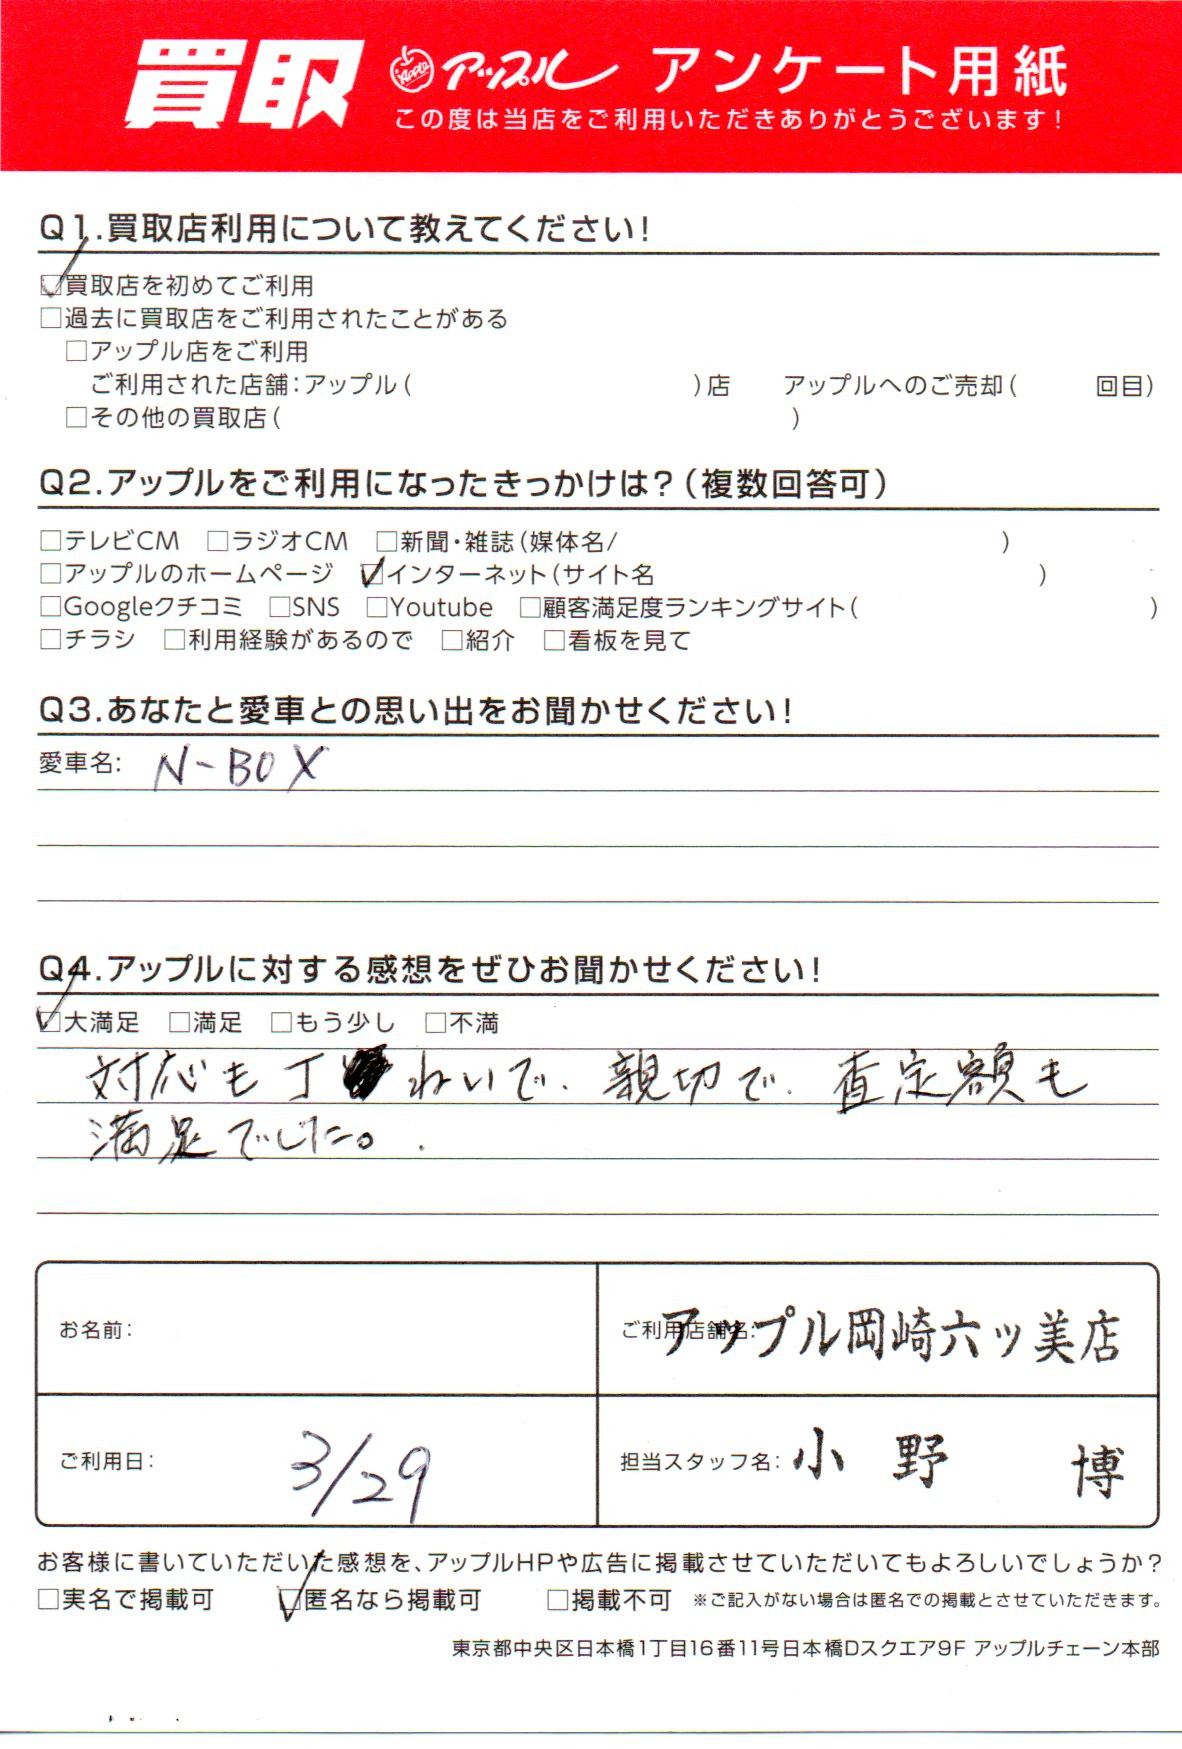 買取 アップル アンケート用紙
この度は当店をご利用いただきありがとうございます！
Q1.買取店利用について教えてください！
☑買取店を初めてご利用
□過去に買取店をご利用されたことがある
□アップル店をご利用
ご利用された店舗：アップル（ ）店 アップルへのご売却（ 回目）
□その他の買取店（ ）
Q2.アップルをご利用になったきっかけは？（複数回答可）
□テレビCM □ラジオCM □新聞・雑誌（媒体名/ ）
□アップルのホームページ ☑インターネット（サイト名 ）
□Googleクチコミ □SNS □Youtube □顧客満足度ランキングサイト（ ）
□チラシ □利用経験があるので □紹介 □看板を見て
Q3.あなたと愛車との思い出をお聞かせください！
愛車名： N-BOX
Q4.アップルに対する感想をぜひお聞かせください！
☑大満足 □満足 □もう少し □不満
対応も丁ねいで、親切で、査定額も
満足でした。
お名前：
ご利用店舗名： アップル岡崎六ッ美店
ご利用日： 3/29
担当スタッフ名： 小野 博
お客様に書いていただいた感想を、アップルHPや広告に掲載させていただいてもよろしいでしょうか？
□実名で掲載可 ☑匿名なら掲載可 □掲載不可 ※ご記入がない場合は匿名での掲載とさせていただきます。
東京都中央区日本橋1丁目16番11号日本橋Dスクエア9F アップルチェーン本部